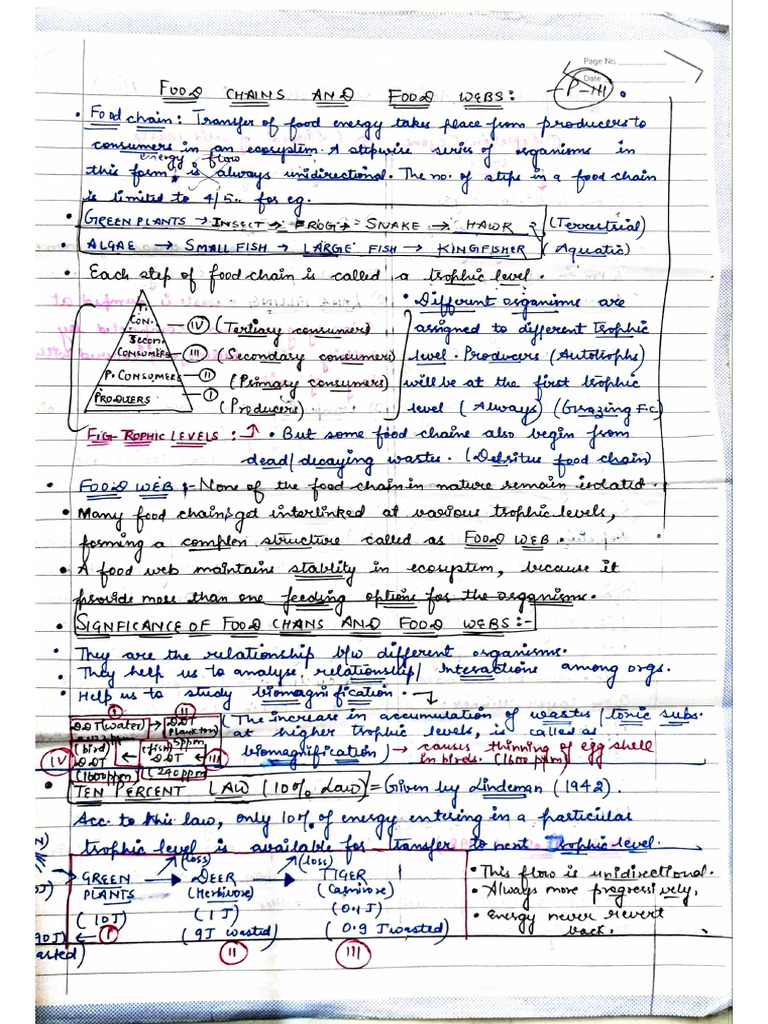 Page No.
Date
P-III
FOOD CHAINS AND FOOD WEBS:
• Food chain: Transfer of food energy takes place from producers to
consumers in an ecosystem. A stepwise series of organisms in
energy flow
this form is always unidirectional. The no. of steps in a food chain
is limited to 4/5.. for eg.
• GREEN PLANTS → INSECT → FROG → SNAKE → HAWK (Terrestrial)
• ALGAE → SMALL FISH → LARGE FISH → KINGFISHER (Aquatic)
• Each step of food chain is called a trophic level.
T. CON. → IV (Tertiary consumers)
Secon. CONSUMERS → III (Secondary consumers)
P. CONSUMERS → II (Primary consumers)
PRODUCERS → I (Producers)
FIG- TROPHIC LEVELS :
• Different organisms are
assigned to different trophic
level. Producers (Autotrophs)
will be at the first trophic
level (Always) (Grazing F.C)
• But some food chains also begin from
dead/decaying wastes. (Detritus food chain)
• FOOD WEB :- None of the food chain in nature remain isolated.
• Many food chains get interlinked at various trophic levels,
forming a complex structure called as FOOD WEB.
• A food web maintains stablity in ecosystem, because it
provide more than one feeding options for the organisms.
• SIGNFICANCE OF FOOD CHANS AND FOOD WEBS:-
• They are the relationship b/w different organisms.
• They help us to analyse relationship/ Interactions among orgs.
• Help us to study biomagnification.
(The increase in accumulation of wastes/toxic subs.
at higher trophic levels, is called as
biomagnification) → causes thinning of egg shell
in birds. (1600 ppm)
I II
DDT (water) → DDT plankton
5ppm
(bird) DDT (1600ppm) ← (fish) DDT (240ppm)
IV III
• TEN PERCENT LAW (10% Law) = Given by Lindeman (1942).
Acc. to this law, only 10% of energy entering in a particular
trophic level is available for transfer to next Trophic level.
(loss) (loss)
GREEN PLANTS → DEER → TIGER
(Herbivore) (Carnivore)
(10J) (1J) (0.1J)
I (9J wasted) (0.9 J wasted)
II III
• This flow is unidirectional.
• Always move progressively.
• Energy never revert
back.